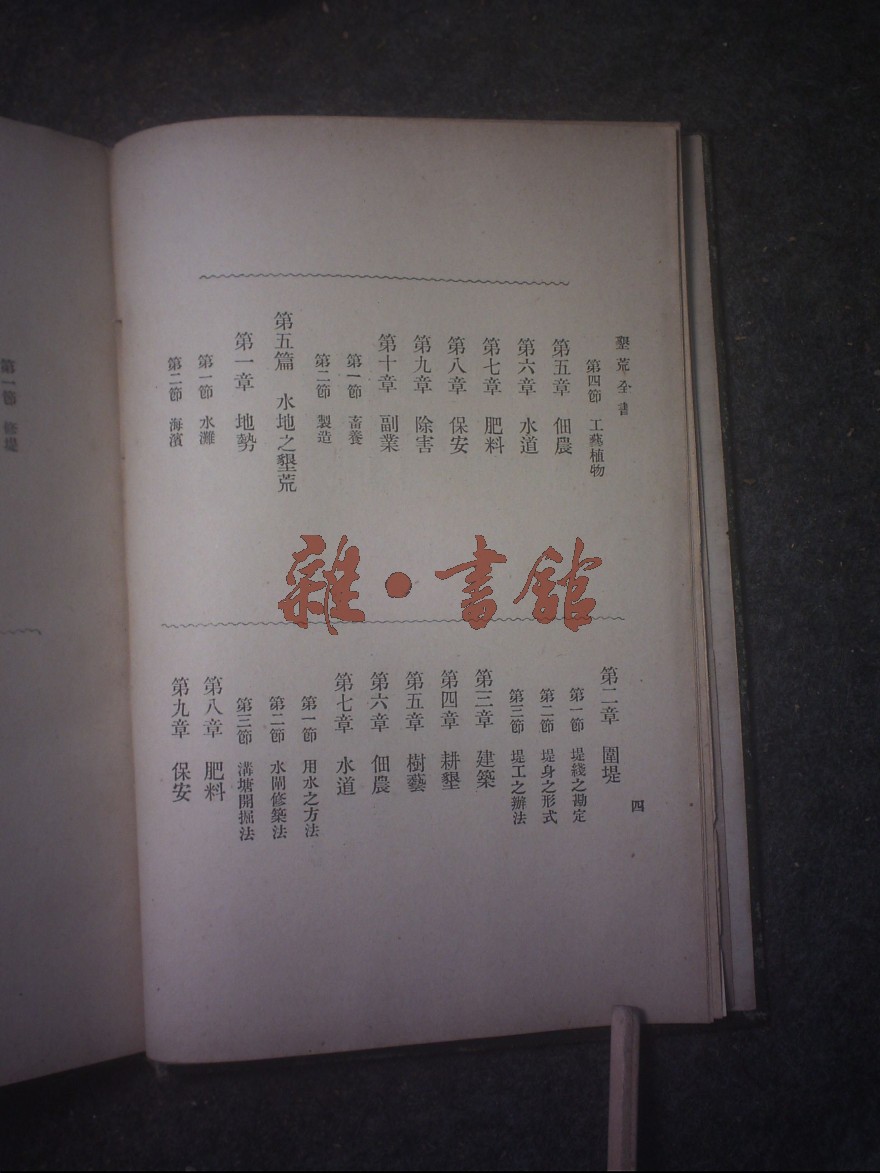 墾荒全書
第四節 工藝植物
第五章 佃農
第六章 水道
第七章 肥料
第八章 保安
第九章 除害
第十章 副業
第一節 畜養
第二節 製造
第五篇 水地之墾荒
第一章 地勢
第一節 水灘
第二節 海濱
第二章 圍堤
第一節 堤綫之勘定
第二節 堤身之形式
第三節 堤工之辦法
第三章 建築
第四章 耕墾
第五章 樹藝
第六章 佃農
第七章 水道
第一節 用水之方法
第二節 水閘修築法
第三節 溝塘開掘法
第八章 肥料
第九章 保安
四
雜·書館
第一節 修堤